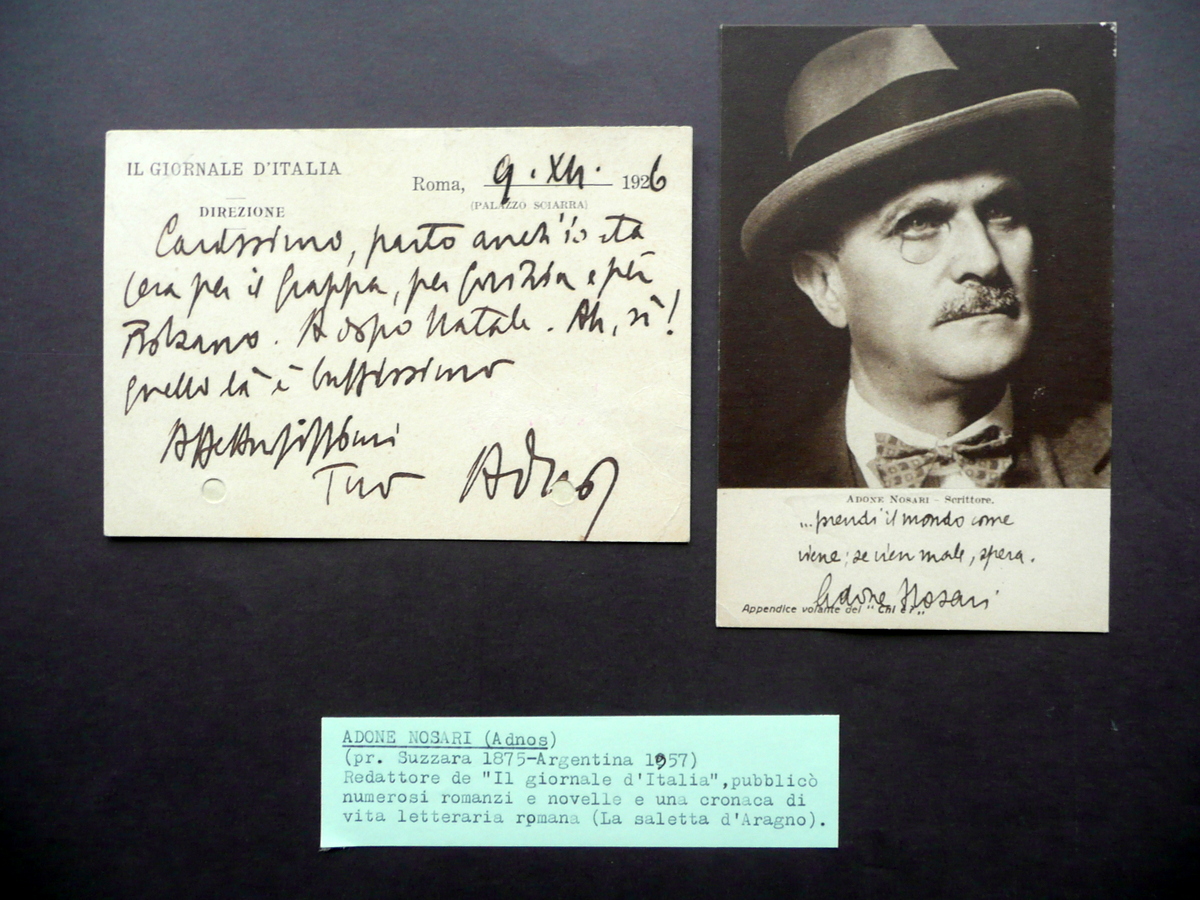 IL GIORNALE D'ITALIA
DIREZIONE
Roma, 9 . XII . 1926
(PALAZZO SCIARRA)
Carissimo, parto anch'io sta
sera per il Grappa, per Gorizia e per
Bolzano. A dopo Natale. Ah, sì!
quello là è buffissimo
Affettuosissimi
Tuo Adnos
ADONE NOSARI - Scrittore.
...prendi il mondo come
viene; se vien male, spera.
Adone Nosari
Appendice volante del "Chi è?"
ADONE NOSARI (Adnos)
(pr. Suzzara 1875-Argentina 1957)
Redattore de "Il giornale d'Italia",pubblicò
numerosi romanzi e novelle e una cronaca di
vita letteraria romana (La saletta d'Aragno).